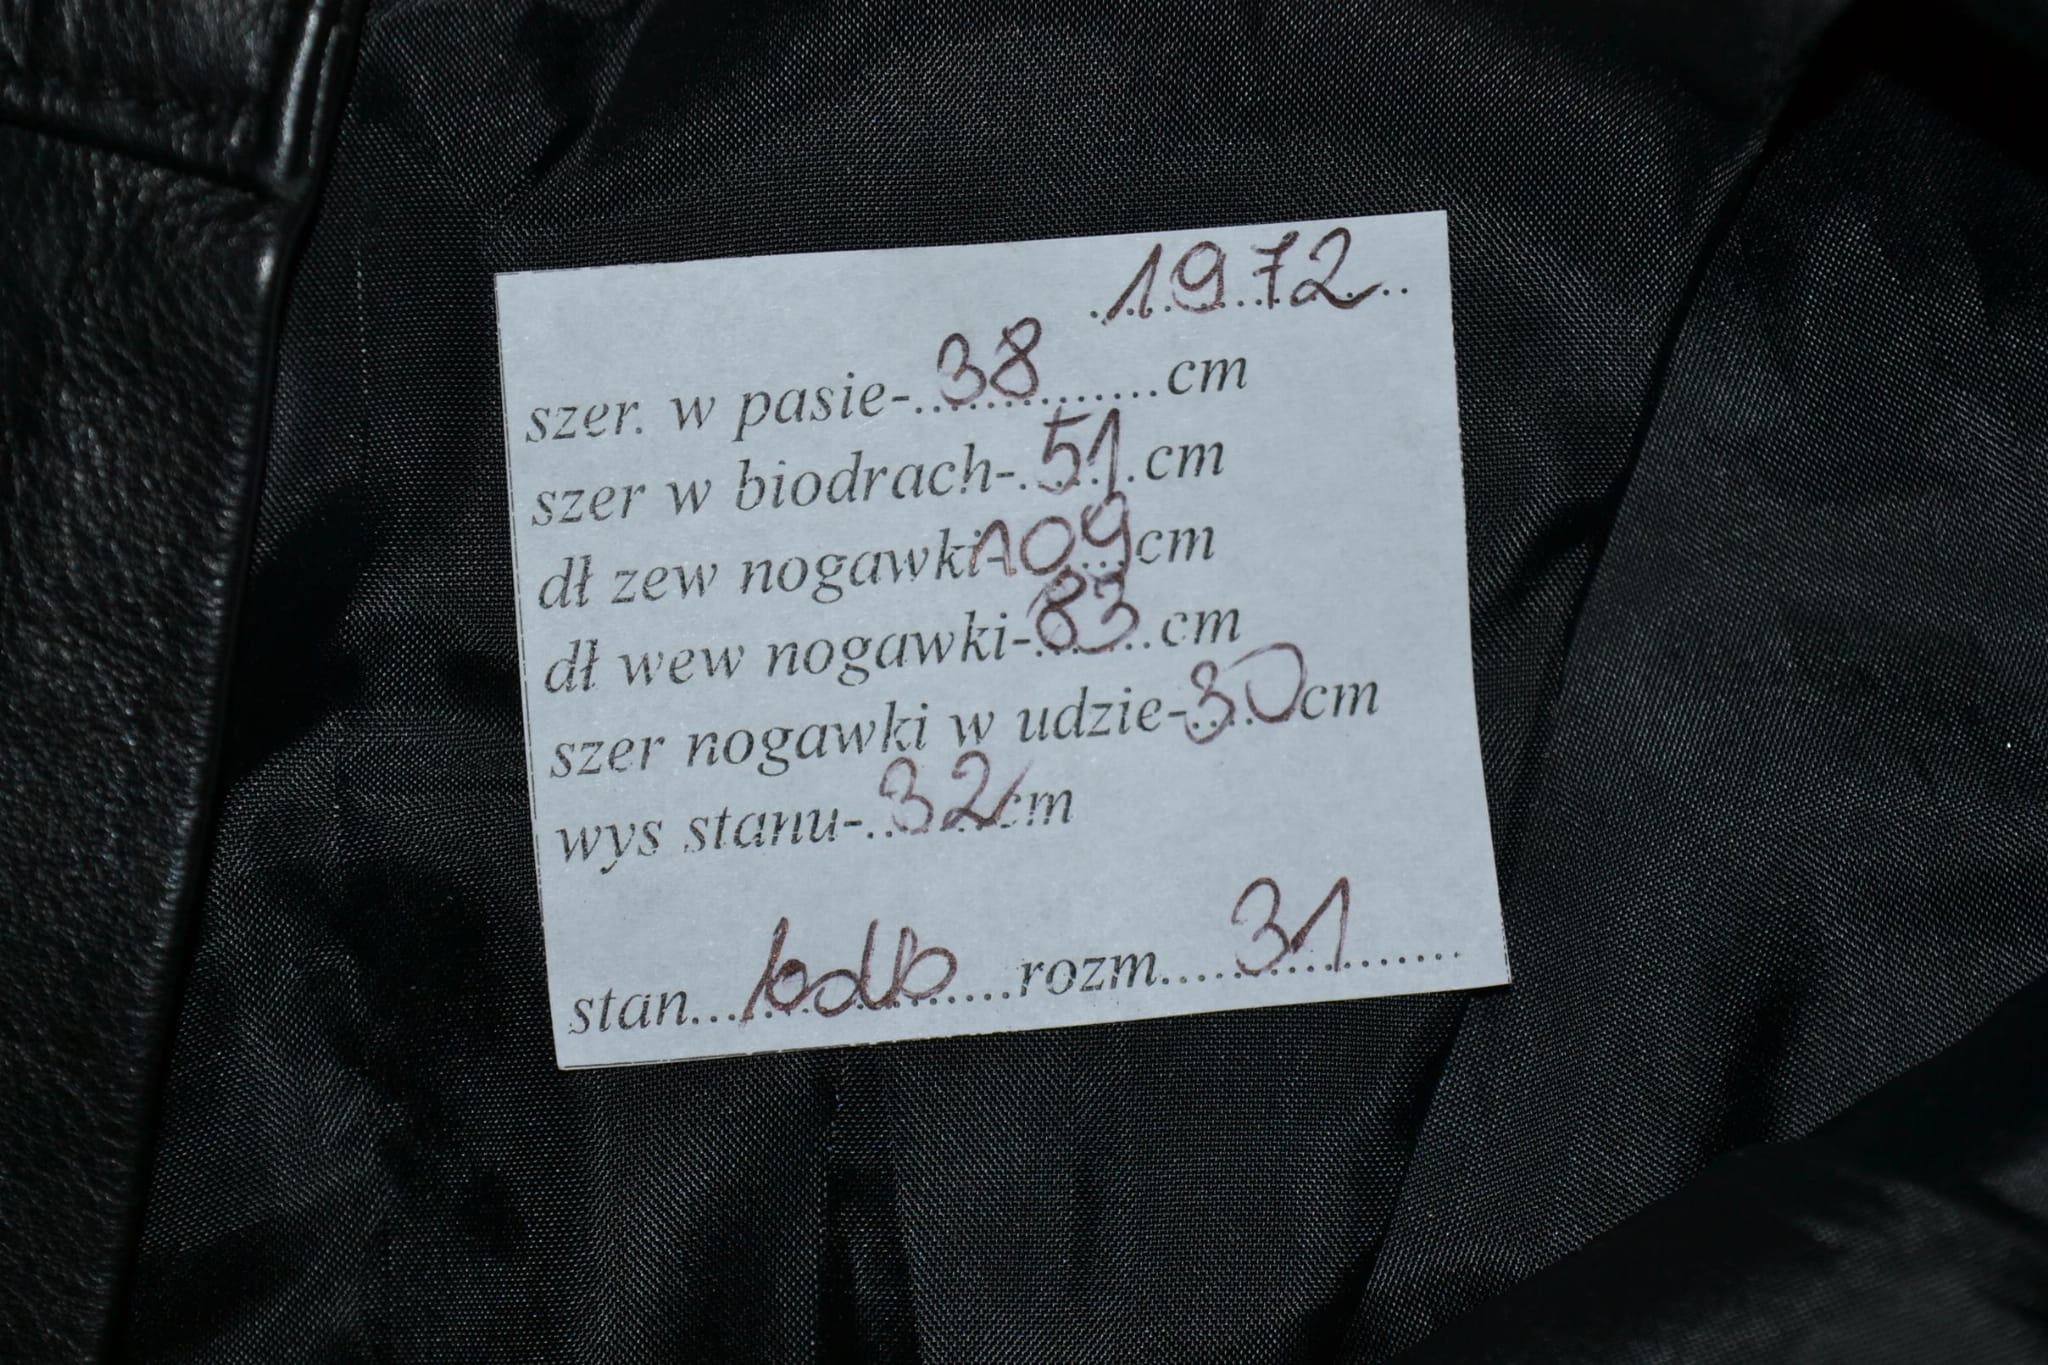 1972
szer. w pasie-38cm
szer w biodrach-51cm
dł zew nogawki-109cm
dł wew nogawki-83cm
szer nogawki w udzie-30cm
wys stanu-32cm
stan...bdb...rozm...31